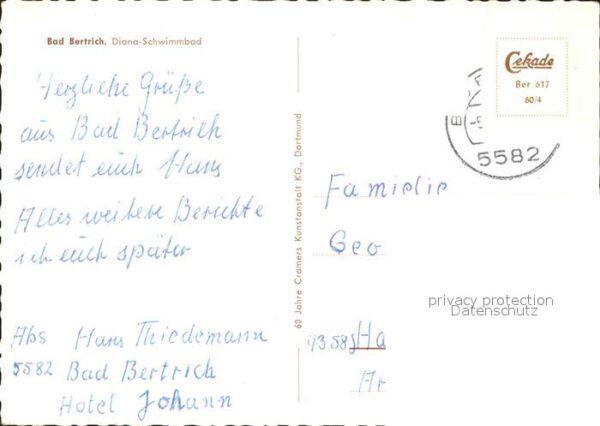 Bad Bertrich. Diana-Schwimmbad
Herzliche Grüße
aus Bad Bertrich
sendet euch Hans
Alles weitere Berichte
ich euch später
Abs Hans Thiedemann
5582 Bad Bertrich
Hotel Johann
60 Jahre Cramers Kunstanstalt KG., Dortmund
Cekade
Ber 617
60/4
5582
Familie
Geo
privacy protection
Datenschutz
Ha
Ar